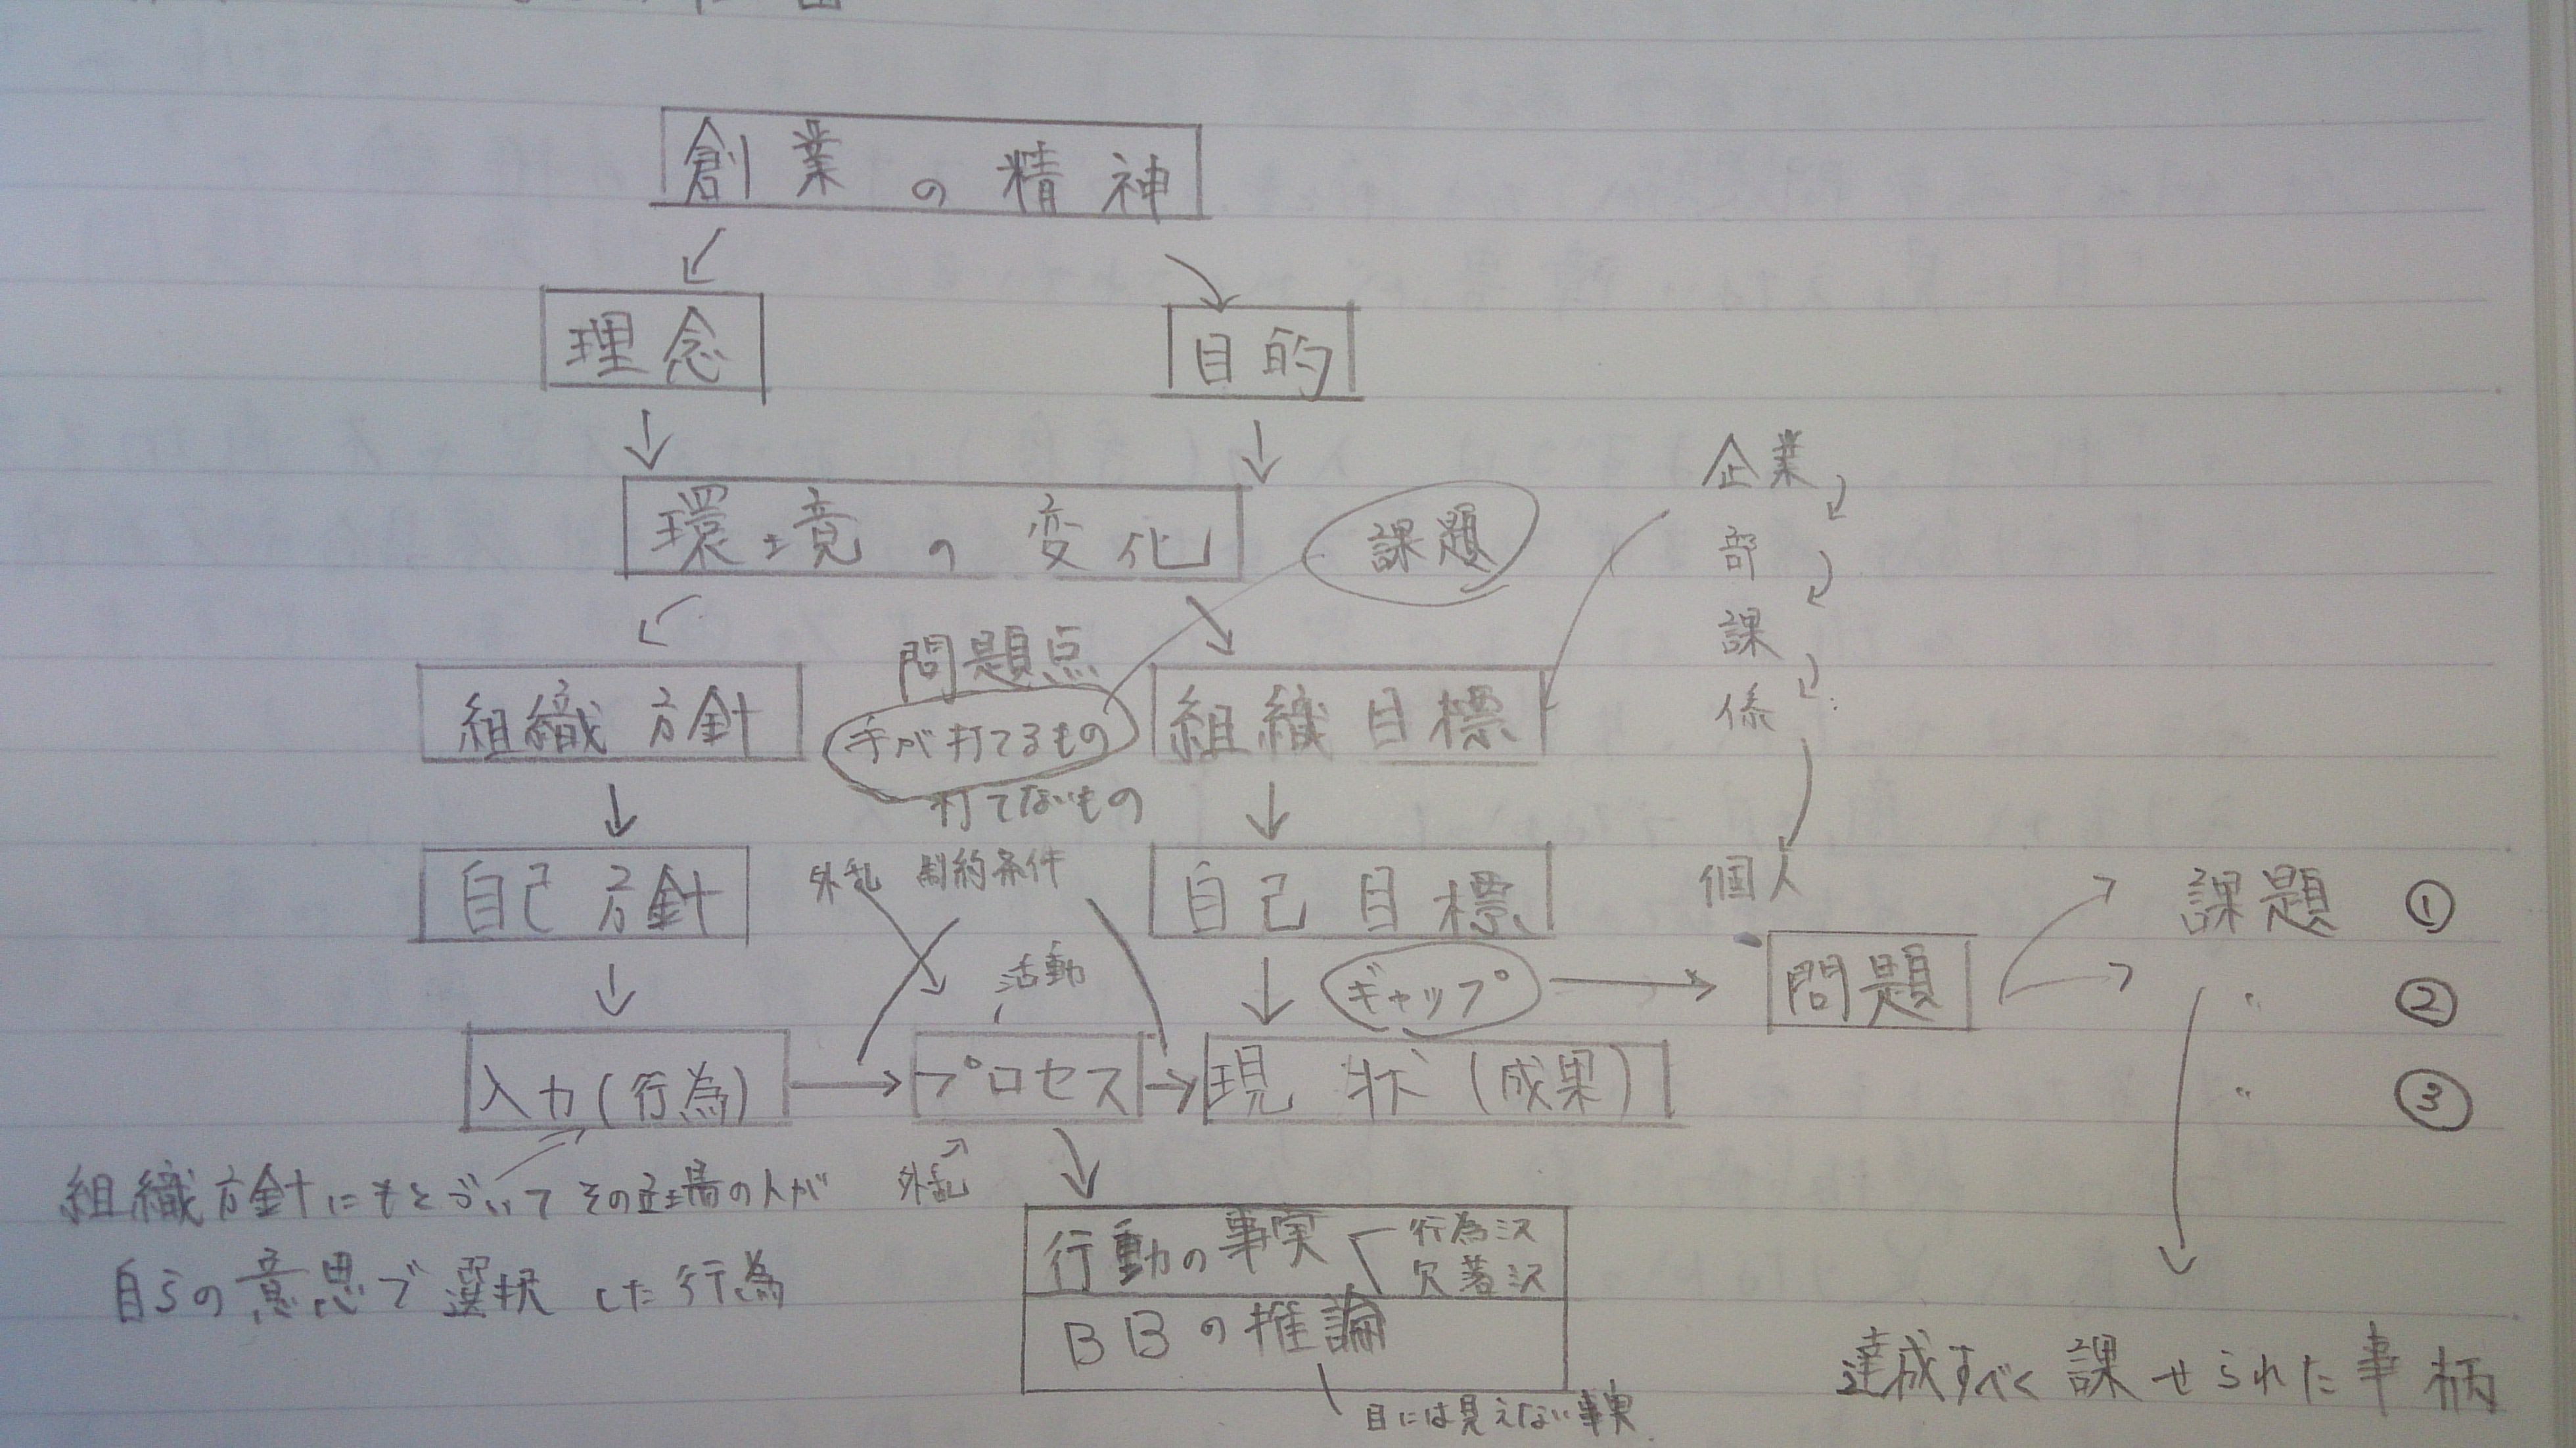 創業の精神
理念
目的
環境の変化
課題
企業
部
課
係
問題点
組織方針
手が打てるもの
組織目標
打てないもの
自己方針
外乱 制約条件
自己目標
個人
課題 ①
活動
ギャップ
問題
〃 ②
入力(行為)
プロセス
現状(成果)
〃 ③
組織方針にもとづいてその立場の人が
外乱
自らの意思で選択した行為
行動の事実
行為
欠落
BBの推論
達成すべく課せられた事柄
目には見えない事実